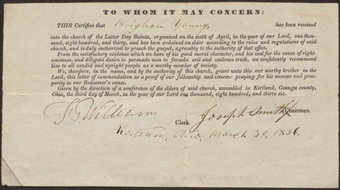 TO WHOM IT MAY CONCERN:
THIS Certifies that Brigham Young has been received
into the church of the Latter Day Saints, organized on the sixth of April, in the year of our Lord, one thousand,
eight hundred, and thirty, and has been ordained an elder according to the rules and regulations of said
church, and is duly authorized to preach the gospel, agreeably to the authority of that office.
From the satisfactory evidence which we have of his good moral character, and his zeal for the cause of righteousness,
and diligent desire to persuade men to forsake evil and embrace truth, we confidently recommend
him to all candid and upright people as a worthy member of society.
We, therefore, in the name, and by the authority of this church, grant unto this our worthy brother in the
Lord, this letter of commendation as a proof of our fellowship and esteem: praying for his success and prosperity
in our Redeemer's cause.
Given by the direction of a conference of the elders of said church, assembled in Kirtland, Geauga county,
Ohio, the third day of March, in the year of our Lord one thousand, eight hundred, and thirty six.
F G Williams Clerk. Joseph Smith Jr Chairman.
Kirtland, Ohio, March 30, 1836.